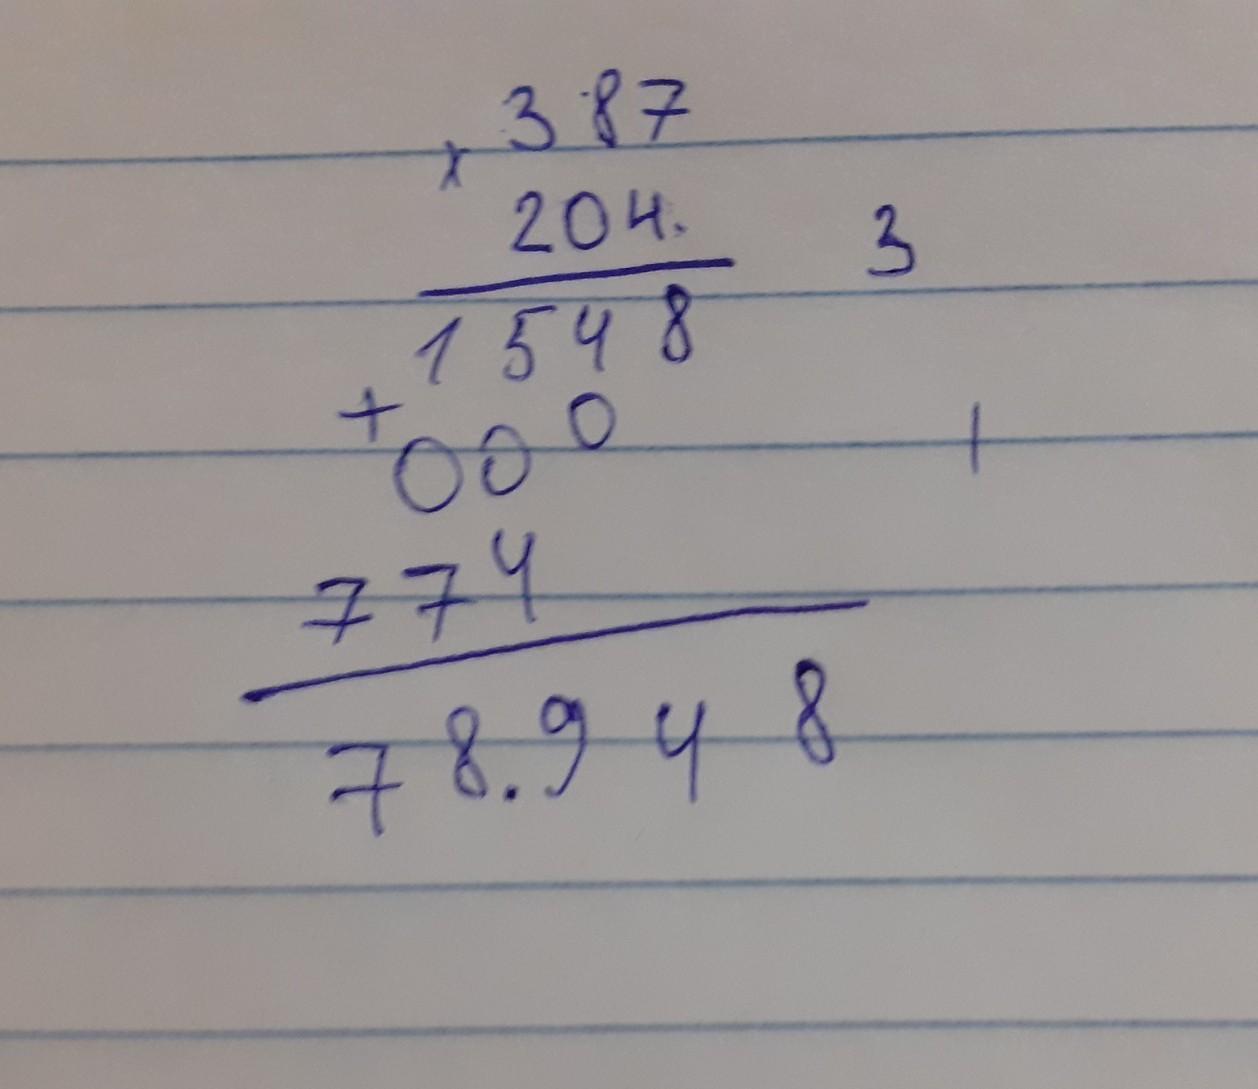 387
x
204. 3
1548
+
000 1
774
78.948